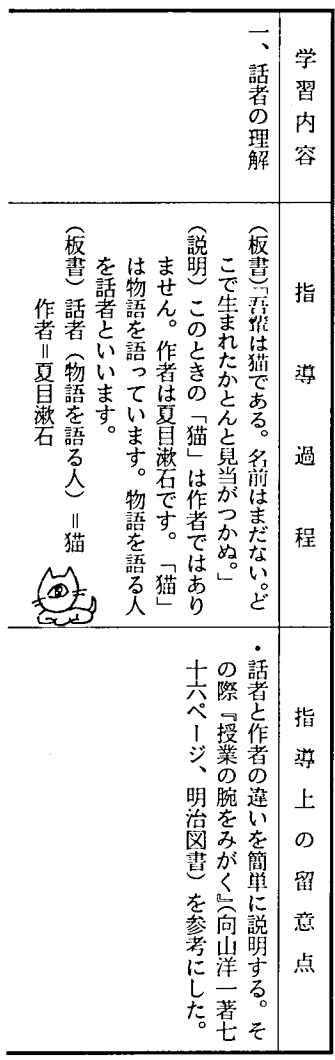 学習内容
一、話者の理解
指導過程
（板書）「吾輩は猫である。名前はまだない。ど
こで生まれたかとんと見当がつかぬ。」
（説明）このときの「猫」は作者ではあり
ません。作者は夏目漱石です。「猫」
は物語を語っています。物語を語る人
を話者といいます。
（板書）話者（物語を語る人）＝猫
作者＝夏目漱石
指導上の留意点
・話者と作者の違いを簡単に説明する。そ
の際『授業の腕をみがく』（向山洋一著七
十六ページ、明治図書）を参考にした。